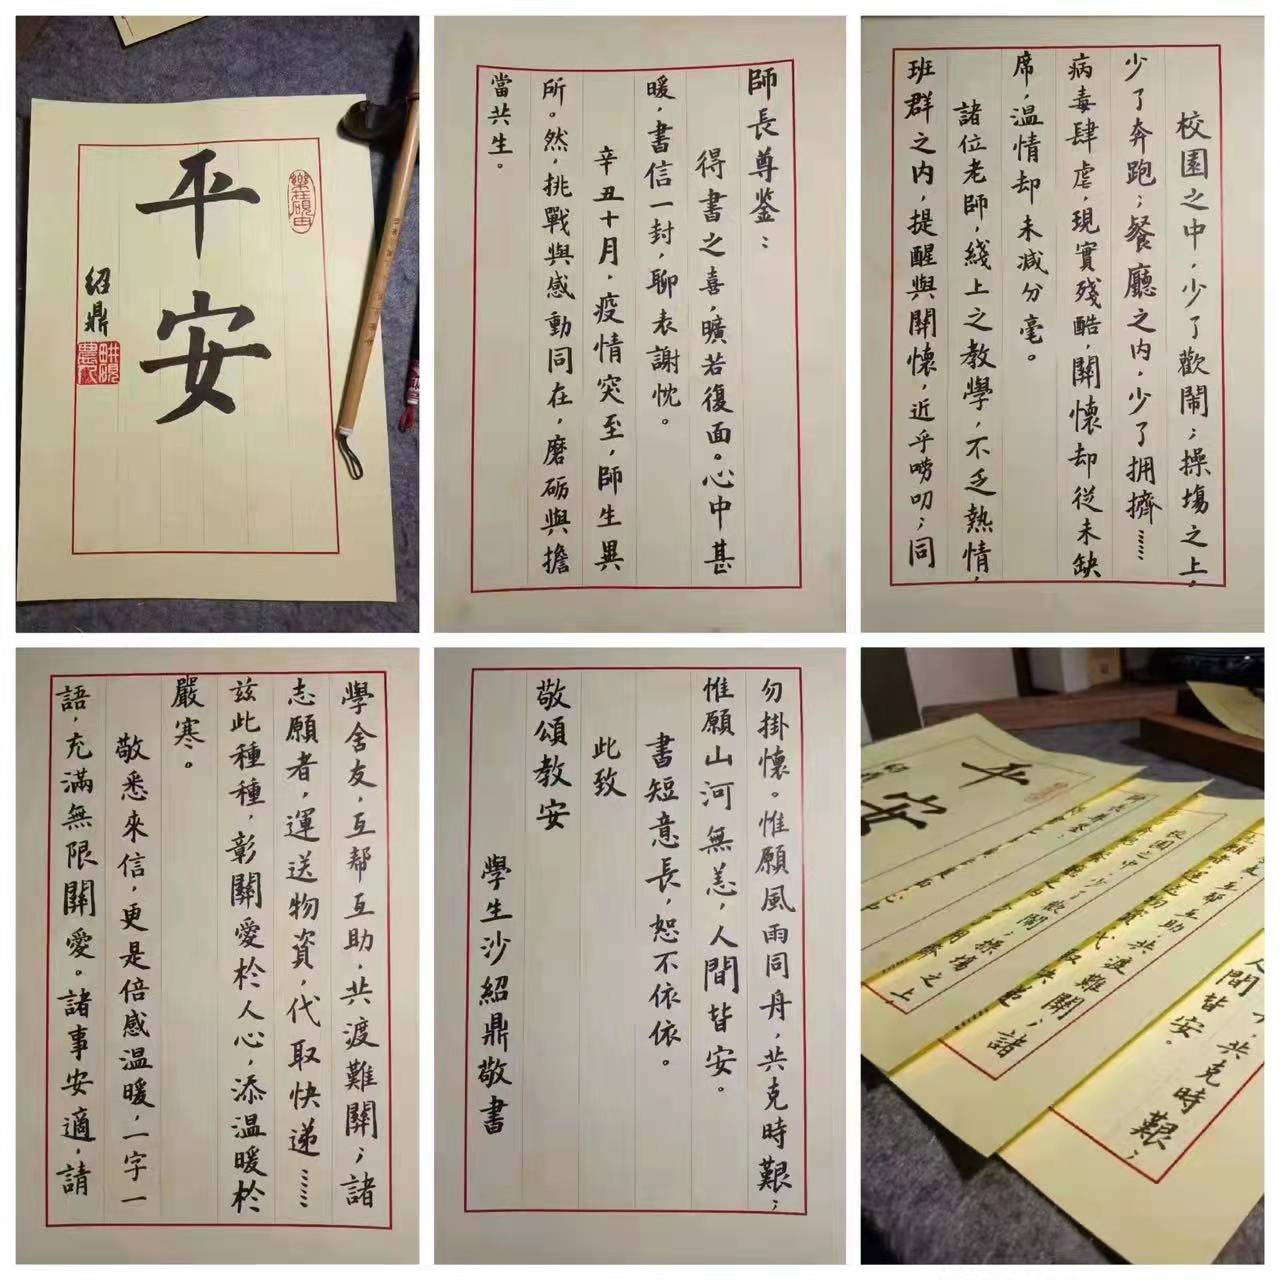 平安
紹鼎
師長尊鉴：
得書之喜，曠若復面。心中甚
暖，書信一封，聊表謝忱。
辛丑十月，疫情突至，師生異
所。然，挑戰與感動同在，磨砺與擔
當共生。
校園之中，少了歡鬧；操場之上，
少了奔跑；餐廳之内，少了拥擠……
病毒肆虐，現實殘酷，關懷却從未缺
席，温情却未减分毫。
諸位老師，綫上之教學，不乏熱情，
班群之内，提醒與關懷，近乎唠叨；同
學舍友，互帮互助，共渡難關；諸
志願者，運送物資，代取快递……
兹此種種，彰關愛於人心，添温暖於
嚴寒。
敬悉來信，更是倍感温暖，一字一
語，充滿無限關愛。諸事安適，請
勿掛懷。惟願風雨同舟，共克時艱；
惟願山河無恙，人間皆安。
書短意長，恕不依依。
此致
敬頌教安
學生沙紹鼎敬書
平安
人間皆安。
共克時艱；